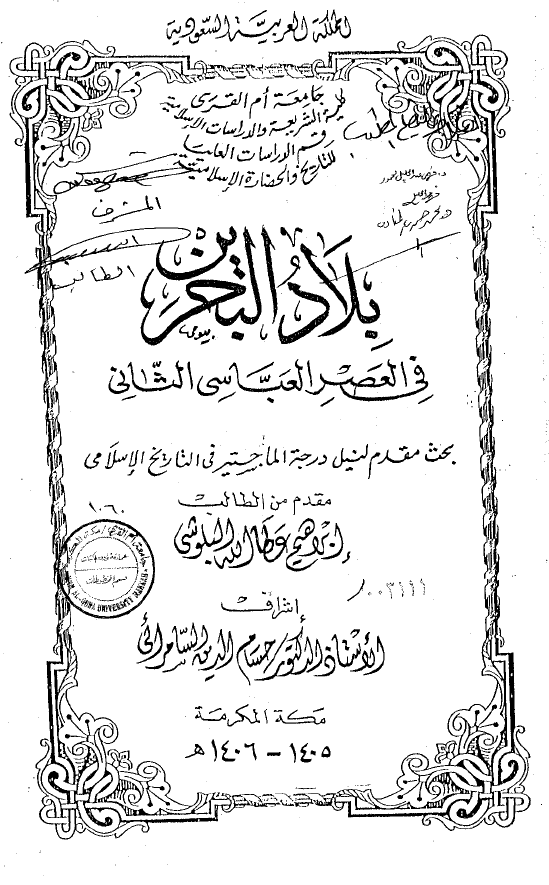 المملكة العربية السعودية
جامعة أم القرى
كلية الشريعة والدراسات الإسلامية
قسم الدراسات العليا
للتاريخ والحضارة الإسلامية
المشرف
الطالب
بلاد البحرين
في العصر العباسي الثاني
بحث مقدم لنيل درجة الماجستير في التاريخ الإسلامي
مقدم من الطالب
إبراهيم عطا الله البلوشي
١٠٦٠
UMM AL-QURA UNIVERSITY MAKKAH
٠٠٣١١١
إشراف
الأستاذ الدكتور حسام الدين السامرائي
مكة المكرمة
١٤٠٥ - ١٤٠٦ هـ